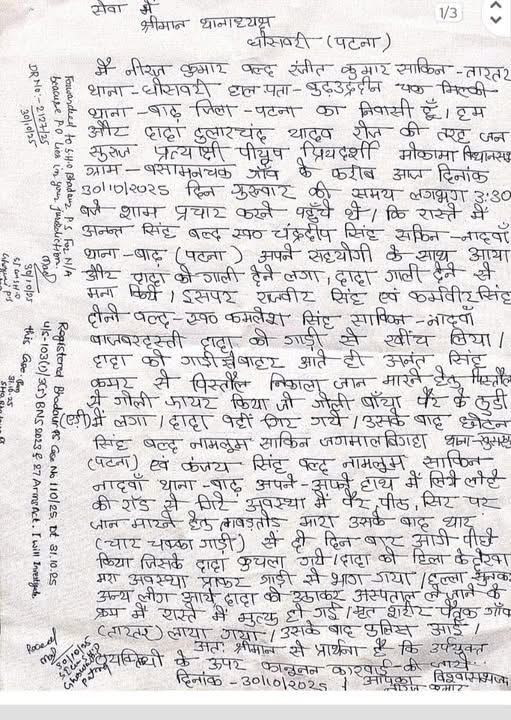 1/3
सेवा में
श्रीमान थानाध्यक्ष
घोसवरी (पटना)
मैं नीरज कुमार वल्द रंजीत कुमार साकिन - तारतर
थाना - घोसवरी हाल पता - चक मिल्की
थाना - बाढ़ जिला - पटना का निवासी हूँ। हम
और दादा दुलारचंद यादव रोज की तरह जन
सुराज प्रत्याक्षी पीयूष प्रियदर्शी मोकामा विधानसभा
ग्राम - बसामनचक गाँव के करीब आज दिनांक
30/10/2025 दिन गुरूवार की समय लगभग 3:30
बजे शाम प्रचार करने पहुँचे थे। कि रास्ते में
अनन्त सिंह वल्द स्व० चंद्रदीप सिंह सकिन - नादवाँ
थाना - बाढ़ (पटना) अपने सहयोगी के साथ आया
और दादा को गाली देने लगा, दादा गाली देने से
मना किये। इसपर राजवीर सिंह एवं कर्मवीर सिंह
दोनो वल्द - स्व० कमलेश सिंह साकिन - नादवाँ
दादा को गाड़ी से खींच लिया।
दादा को गाड़ी से बाहर आते ही अनंत सिंह
कमर से पिस्तौल निकाला जान मारने हेतु पिस्तौल
से गोली फायर किया जो गोली बाँया पैर के
(एड़ी) में लगा। दादा वहीं गिर गये। उसके बाद छोटन
सिंह वल्द नामलुम साकिन थाना -
(पटना) एवं कंजय सिंह वल्द नामलुम साकिन
नादवाँ थाना - बाढ़ अपने - अपने हाथ में लिये लोहे
की रॉड से गिरे अवस्था में पैर, पीठ, सिर पर
जान मारने हेतु मारा उसके बाद थार
(चार चक्का गाड़ी) से दो तीन बार आगे पीछे
किया जिसके दादा कुचला गये। दादा को हिला के देखा
मरा अवस्था पाकर गाड़ी से भाग गया। हल्ला सुनकर
अन्य लोग आये दादा को उठाकर अस्पताल ले जाने के
क्रम में रास्ते में मृत्यु हो गई। मृत शरीर पैतृक गाँव
(तारतर) लाया गया। उसके बाद पुलिस आई।
अतः श्रीमान से प्रार्थना है कि उपर्युक्त
व्यक्तियों के ऊपर कानूनन कारवाई की जाये
दिनांक - 30/10/2025 आपका विश्वासभाजन
नीरज कुमार
DR No - 2127/25
30/10/25
Forwarded to SHO Bhadaur P.S. For N/A
because P.O lies in your Jurisdiction
30/10/25
Registered Bhadaur PS Case No 110/25 Dt 31.10.25
U/S - 103(1)/3(5) BNS 2023 & 27 Arms Act. I will Investigate
this Case.